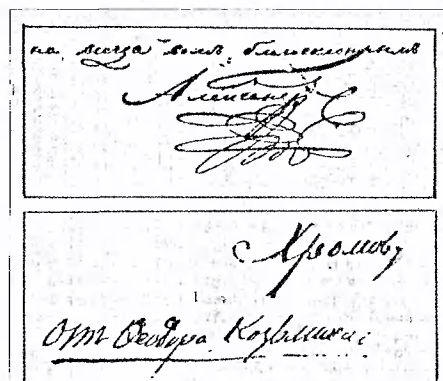 на всегда вамъ благосклоннымъ
Александръ
Хромову
отъ Ѳеодора Козьмича